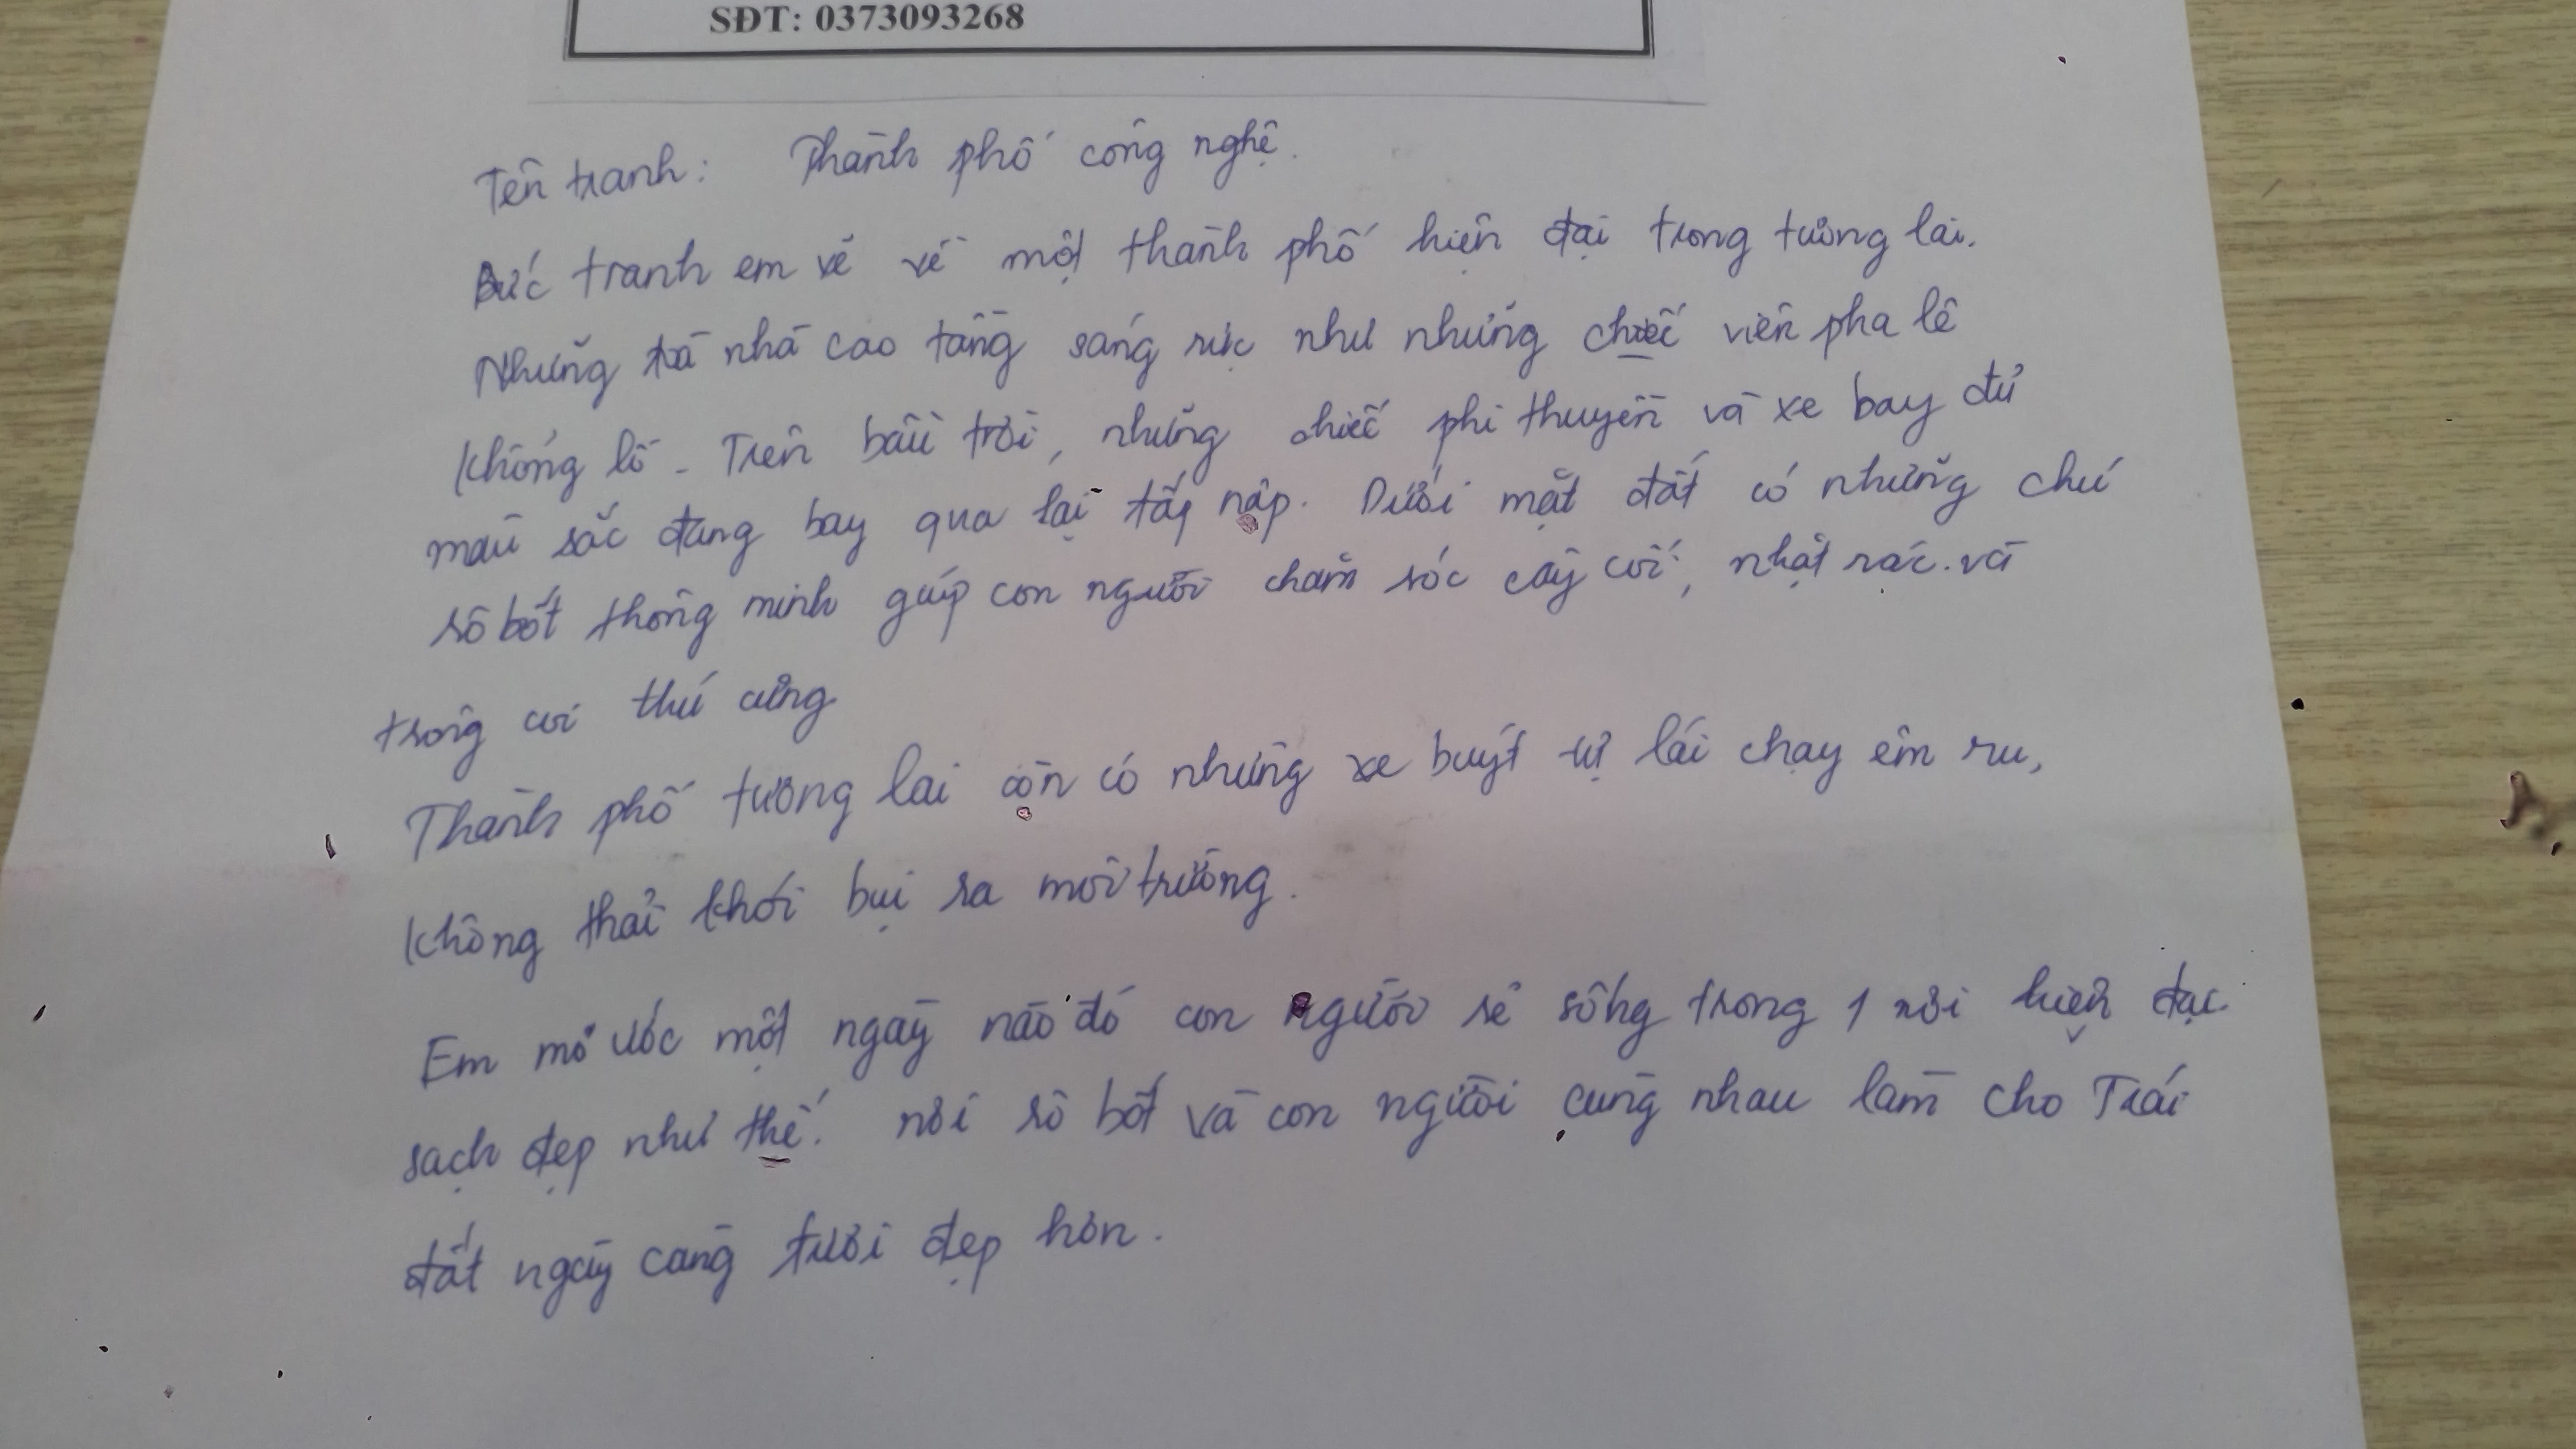 SĐT: 0373093268
Tên tranh: Thành phố công nghệ.
Bức tranh em vẽ về một thành phố hiện đại trong tương lai.
Những toà nhà cao tầng sáng rực như những chiếc viên pha lê
khổng lồ. Trên bầu trời, những chiếc phi thuyền và xe bay đủ
màu sắc đang bay qua lại tấp nập. Dưới mặt đất có những chú
rô bốt thông minh giúp con người chăm sóc cây cối, nhặt rác và
trông coi thú cưng
Thành phố tương lai còn có những xe buýt tự lái chạy êm ru,
không thải khói bụi ra môi trường.
Em mơ ước một ngày nào đó con người sẽ sống trong 1 nơi hiện đại
sạch đẹp như thế. nơi rô bốt và con người cùng nhau làm cho Trái
đất ngày càng tươi đẹp hơn.